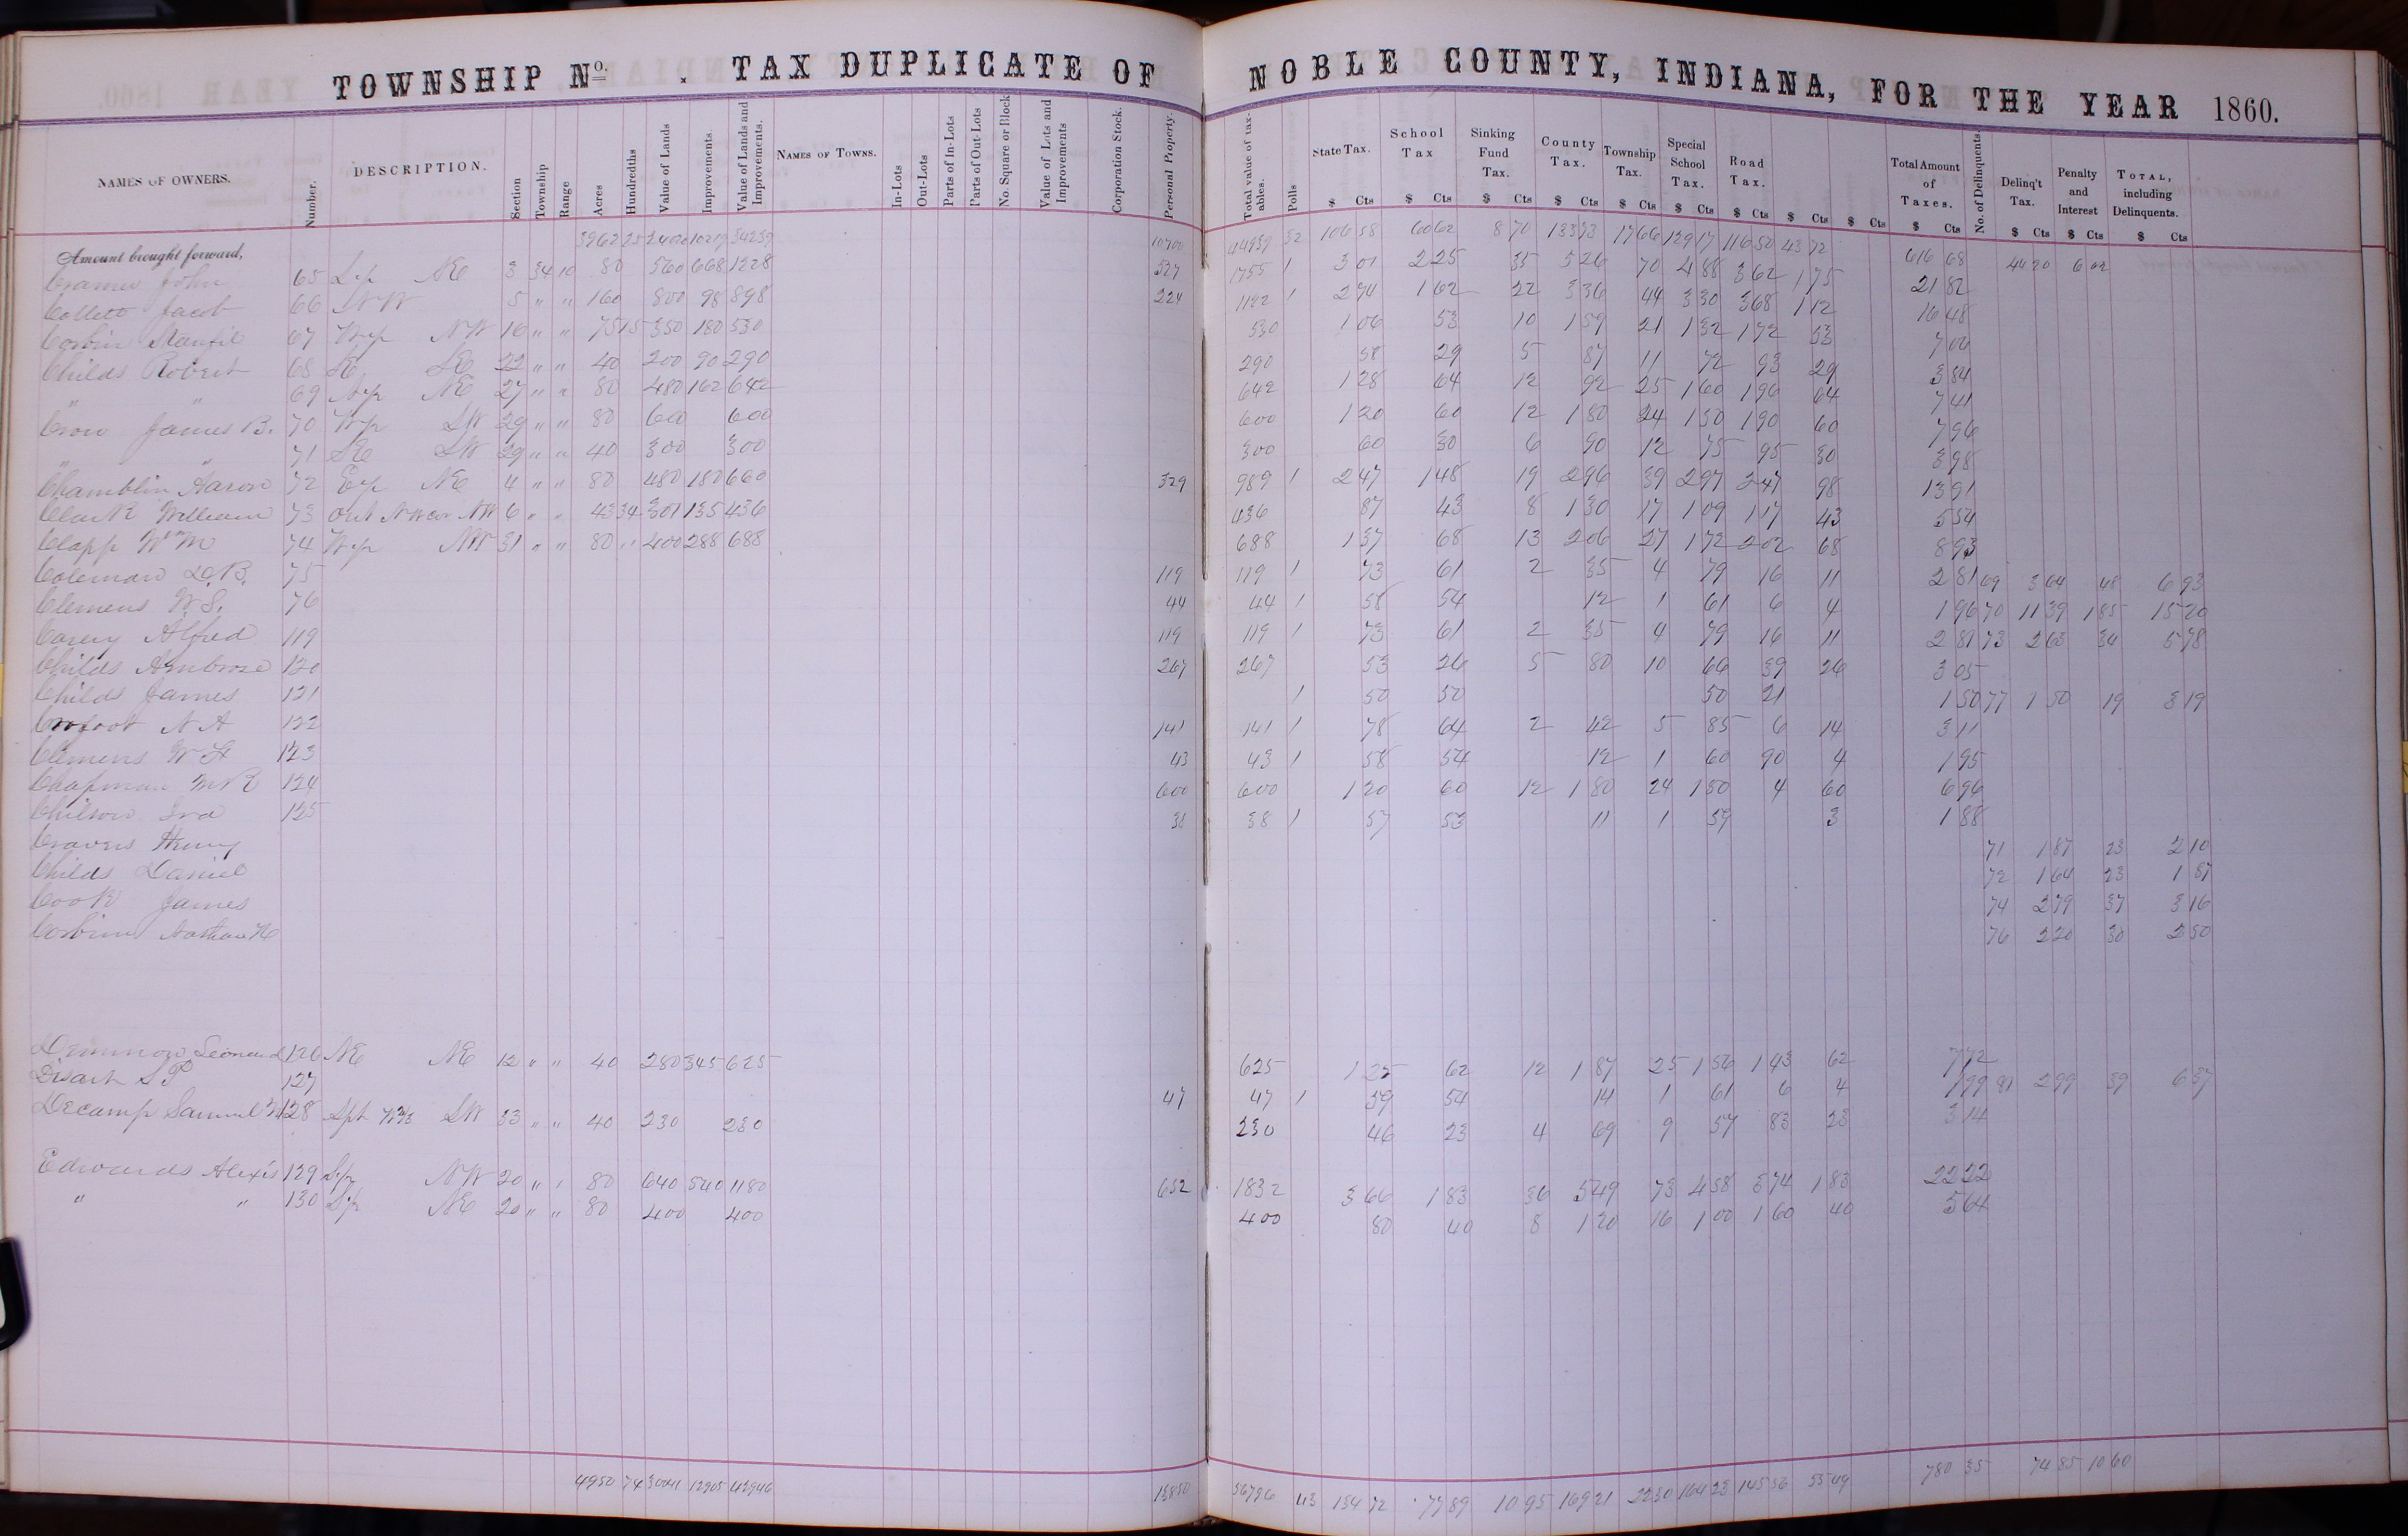 TOWNSHIP No. . TAX DUPLICATE OF NOBLE COUNTY, INDIANA, FOR THE YEAR 1860.
NAMES OF OWNERS. Number. DESCRIPTION. Section Township Range Acres Hundredths Value of Lands Improvements. Value of Lands and Improvements. NAMES OF TOWNS. In-Lots Out-Lots Parts of In-Lots Parts of Out-Lots No. Square or Block Value of Lots and Improvements Corporation Stock. Personal Property. Total value of taxables. Polls State Tax. School Tax Sinking Fund Tax. County Tax. Township Tax. Special School Tax. Road Tax. Total Amount of Taxes. No. of Delinquents Delinq't Tax. Penalty and Interest TOTAL, including Delinquents.
$ Cts $ Cts $ Cts $ Cts $ Cts $ Cts $ Cts $ Cts $ Cts $ Cts $ Cts $ Cts $ Cts
Amount brought forward, 3962 25 34239 10700 44939 32 106 58 60 62 8 70 133 73 17 66 129 17 116 50 43 72 616 68 44 20 6 02
Cramer John 65 NE 3 34 10 80 560 668 1228 527 1755 1 3 01 2 25 35 5 26 70 4 88 3 62 1 75 21 82
Collett Jacob 66 NW 5 " " 160 800 98 898 224 1122 1 2 74 1 62 22 3 36 44 3 30 3 68 1 12 16 48
Corbin 67 NW 16 " " 75 15 350 180 530 530 1 06 53 10 1 59 21 1 32 1 72 53 7 06
Childs Robert 68 SE SE 22 " " 40 200 90 290 290 58 29 5 87 11 72 93 29 3 84
" " 69 NE 27 " " 80 480 162 642 642 1 28 64 12 92 25 1 60 1 96 64 7 41
Crow James B. 70 SW 29 " " 80 600 600 600 1 20 60 12 1 80 24 1 50 1 90 60 7 96
" " 71 SE SW 29 " " 40 300 300 300 60 30 6 90 12 75 95 30 3 98
Chamblin Aaron 72 NE 4 " " 80 480 180 660 329 989 1 2 47 1 48 19 2 96 39 2 97 2 47 98 13 91
Clark William 73 NW 6 " " 43 34 301 135 436 436 87 43 8 1 30 17 1 09 1 17 43 5 54
Clapp Wm 74 NW 31 " " 80 " 400 288 688 688 1 37 68 13 2 06 27 1 72 2 02 68 8 93
Coleman D.B. 75 119 119 1 73 61 2 35 4 79 16 11 2 81 69 3 64 48 6 93
Clemens W.S. 76 44 44 1 58 54 12 1 61 6 4 1 96 70 11 39 1 85 15 20
Carey Alfred 119 119 119 1 73 61 2 35 4 79 16 11 2 81 73 2 63 34 5 78
Childs Ambrose 120 267 267 53 26 5 80 10 66 39 26 3 05
Childs James 121 1 50 50 50 21 1 50 77 1 50 19 3 19
Crofoot N A 122 141 141 1 78 64 2 42 5 85 6 14 3 11
Clemens W 123 43 43 1 58 54 12 1 60 90 4 1 95
Chapman 124 600 600 1 20 60 12 1 80 24 1 50 4 60 6 96
Chilson Ira 125 38 38 1 57 53 11 1 59 3 1 88
Cravens Henry 71 1 87 23 2 10
Childs Daniel 72 1 64 23 1 87
Cook James 74 2 79 37 3 16
Corbin Nathan 76 2 20 30 2 50
Demmon Leonard 126 NE NE 12 " " 40 280 345 625 625 1 25 62 12 1 87 25 1 56 1 43 62 7 72
127 47 47 1 59 54 14 1 61 6 4 1 99 81 2 99 39 6 37
Decamp Samuel 128 SW 33 " " 40 230 230 230 46 23 4 69 9 57 83 23 3 14
Edwards Alexis 129 NW 20 " " 80 640 540 1180 652 1832 3 66 1 83 36 5 49 73 4 58 3 74 1 83 22 22
" " 130 NE 20 " " 80 400 400 400 80 40 8 1 20 16 1 00 1 60 40 5 64
4950 74 30041 12905 42946 13850 56796 43 134 72 77 89 10 95 169 21 22 30 164 23 145 56 55 49 780 35 74 85 10 60